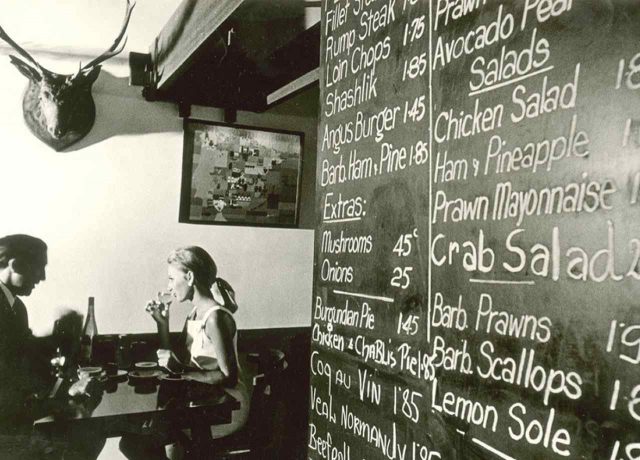 Fillet Steak
Rump Steak 1·75
Loin Chops
Shashlik 1·85
Angus Burger 1·45
Barb. Ham & Pine 1·85
Extras:
Mushrooms 45c
Onions 25
Burgundian Pie 1·45
Chicken & Chablis Pie 1·85
Coq au Vin 1'85
Veal Normandy 1'85
Prawn
Avocado Pear
Salads
Chicken Salad
Ham & Pineapple
Prawn Mayonnaise
Crab Salad
Barb. Prawns
Barb. Scallops
Lemon Sole